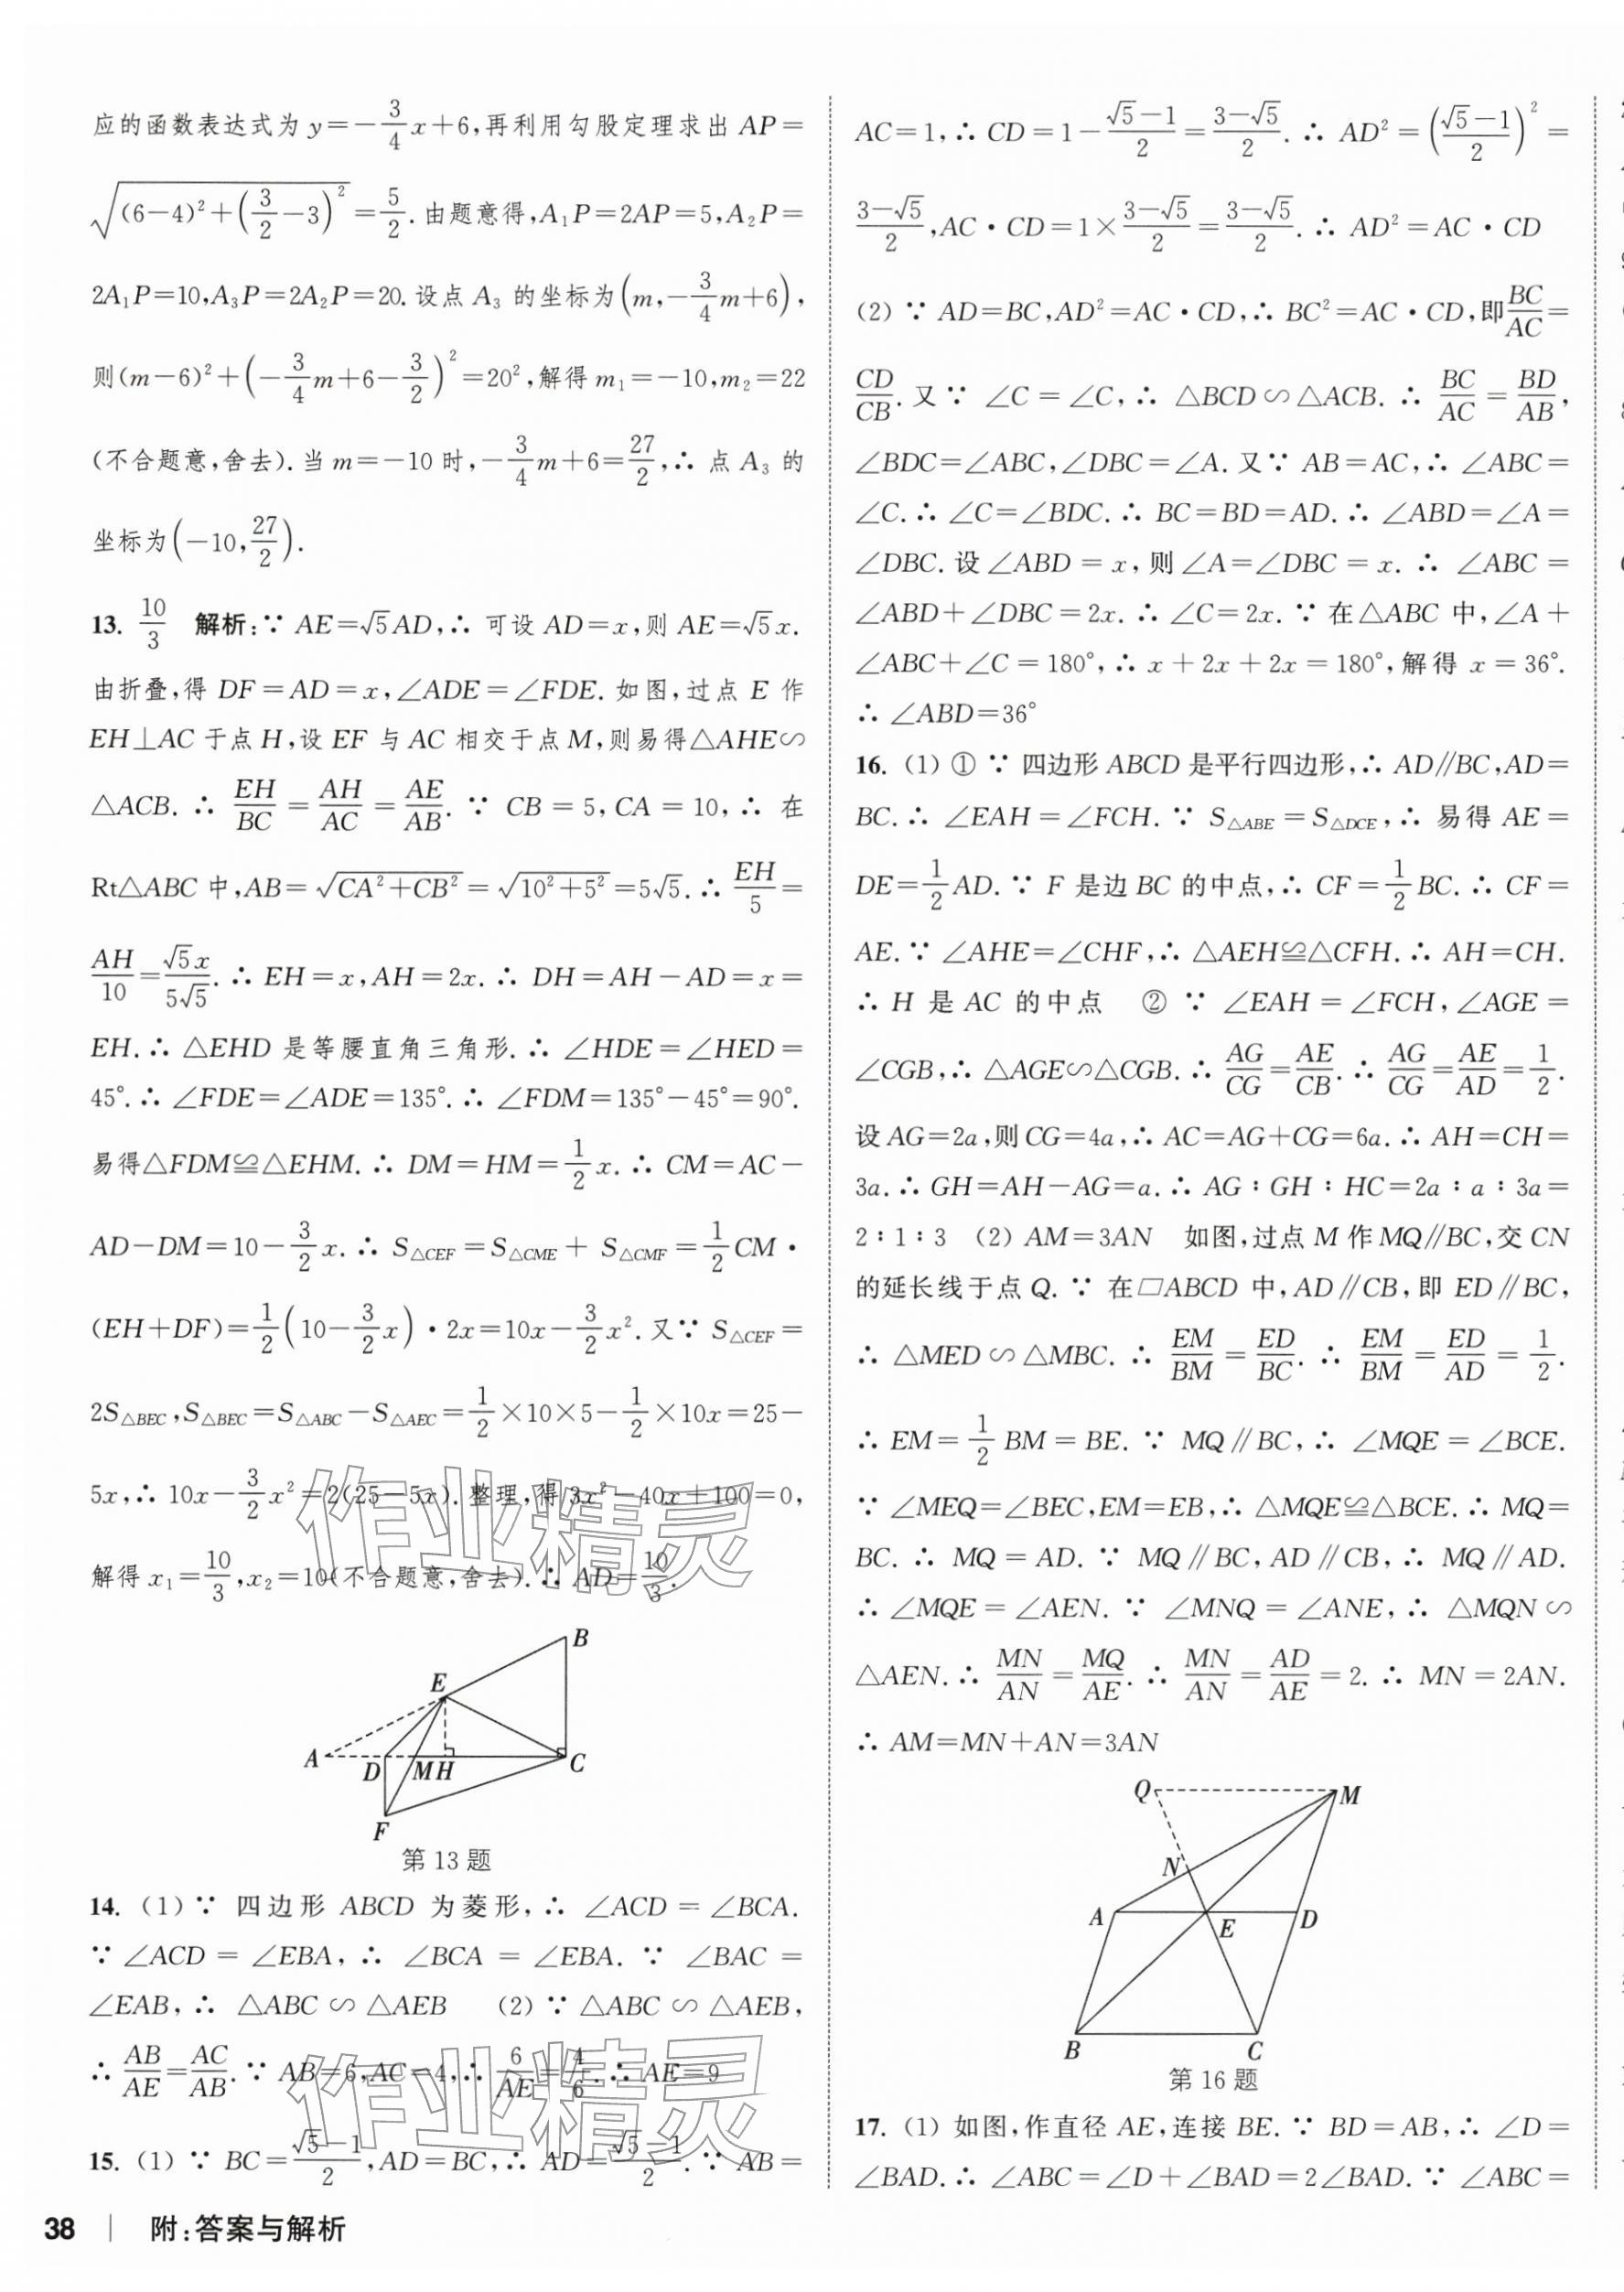 应的函数表达式为 y=-3/4x+6,再利用勾股定理求出 AP=
√((6-4)²+(3/2-3)²)=5/2.由题意得,A₁P=2AP=5,A₂P=
2A₁P=10,A₃P=2A₂P=20.设点 A₃ 的坐标为(m,-3/4m+6),
则(m-6)²+(-3/4m+6-3/2)²=20²,解得 m₁=-10,m₂=22
(不合题意,舍去).当 m=-10 时,-3/4m+6=27/2,∴ 点 A₃ 的
坐标为(-10,27/2).
13. 10/3 解析:∵ AE=√5AD,∴ 可设 AD=x,则 AE=√5x.
由折叠,得 DF=AD=x,∠ADE=∠FDE. 如图,过点 E 作
EH⊥AC 于点 H,设 EF 与 AC 相交于点 M,则易得△AHE∽
△ACB. ∴ EH/BC=AH/AC=AE/AB. ∵ CB=5,CA=10,∴ 在
Rt△ABC 中,AB=√(CA²+CB²)=√(10²+5²)=5√5.∴ EH/5=
AH/10=√5x/5√5.∴ EH=x,AH=2x.∴ DH=AH-AD=x=
EH.∴ △EHD 是等腰直角三角形.∴ ∠HDE=∠HED=
45°.∴ ∠FDE=∠ADE=135°.∴ ∠FDM=135°-45°=90°.
易得△FDM≌△EHM.∴ DM=HM=1/2x.∴ CM=AC-
AD-DM=10-3/2x.∴ S△CEF=S△CME+S△CMF=1/2CM·
(EH+DF)=1/2(10-3/2x)·2x=10x-3/2x².又∵ S△CEF=
2S△BEC,S△BEC=S△ABC-S△AEC=1/2×10×5-1/2×10x=25-
5x,∴ 10x-3/2x²=2(25-5x).整理,得 3x²-40x+100=0,
解得 x₁=10/3,x₂=10(不合题意,舍去).∴ AD=10/3.
B
E
A
D
M
H
C
F
第 13 题
14. (1) ∵ 四边形 ABCD 为菱形,∴ ∠ACD=∠BCA.
∵ ∠ACD=∠EBA,∴ ∠BCA=∠EBA. ∵ ∠BAC=
∠EAB,∴ △ABC∽△AEB (2) ∵ △ABC∽△AEB,
∴ AB/AE=AC/AB.∵ AB=6,AC=4,∴ 6/AE=4/6.∴ AE=9
15. (1) ∵ BC=(√5-1)/2,AD=BC,∴ AD=(√5-1)/2.∵ AB=
38 | 附:答案与解析
AC=1,∴ CD=1-(√5-1)/2=(3-√5)/2.∴ AD²=((√5-1)/2)²=
(3-√5)/2,AC·CD=1×(3-√5)/2=(3-√5)/2.∴ AD²=AC·CD
(2) ∵ AD=BC,AD²=AC·CD,∴ BC²=AC·CD,即BC/AC=
CD/CB.又∵ ∠C=∠C,∴ △BCD∽△ACB.∴ BC/AC=BD/AB,
∠BDC=∠ABC,∠DBC=∠A.又∵ AB=AC,∴ ∠ABC=
∠C.∴ ∠C=∠BDC.∴ BC=BD=AD.∴ ∠ABD=∠A=
∠DBC.设∠ABD=x,则∠A=∠DBC=x.∴ ∠ABC=
∠ABD+∠DBC=2x.∴ ∠C=2x.∵ 在△ABC 中,∠A+
∠ABC+∠C=180°,∴ x+2x+2x=180°,解得 x=36°.
∴ ∠ABD=36°
16. (1) ① ∵ 四边形 ABCD 是平行四边形,∴ AD∥BC,AD=
BC.∴ ∠EAH=∠FCH.∵ S△ABE=S△DCE,∴ 易得 AE=
DE=1/2AD.∵ F 是边 BC 的中点,∴ CF=1/2BC.∴ CF=
AE.∵ ∠AHE=∠CHF,∴ △AEH≌△CFH.∴ AH=CH.
∴ H 是 AC 的中点 ② ∵ ∠EAH=∠FCH,∠AGE=
∠CGB,∴ △AGE∽△CGB.∴ AG/CG=AE/CB.∴ AG/CG=AE/AD=1/2.
设 AG=2a,则 CG=4a,∴ AC=AG+CG=6a.∴ AH=CH=
3a.∴ GH=AH-AG=a.∴ AG∶GH∶HC=2a∶a∶3a=
2∶1∶3 (2) AM=3AN 如图,过点 M 作 MQ∥BC,交 CN
的延长线于点 Q.∵ 在▱ABCD 中,AD∥CB,即 ED∥BC,
∴ △MED∽△MBC.∴ EM/BM=ED/BC.∴ EM/BM=ED/AD=1/2.
∴ EM=1/2BM=BE.∵ MQ∥BC,∴ ∠MQE=∠BCE.
∵ ∠MEQ=∠BEC,EM=EB,∴ △MQE≌△BCE.∴ MQ=
BC.∴ MQ=AD.∵ MQ∥BC,AD∥CB,∴ MQ∥AD.
∴ ∠MQE=∠AEN.∵ ∠MNQ=∠ANE,∴ △MQN∽
△AEN.∴ MN/AN=MQ/AE.∴ MN/AN=AD/AE=2.∴ MN=2AN.
∴ AM=MN+AN=3AN
Q
M
N
A
E
D
B
C
第 16 题
17. (1) 如图,作直径 AE,连接 BE.∵ BD=AB,∴ ∠D=
∠BAD.∴ ∠ABC=∠D+∠BAD=2∠BAD.∵ ∠ABC=
作业精灵
作业精灵